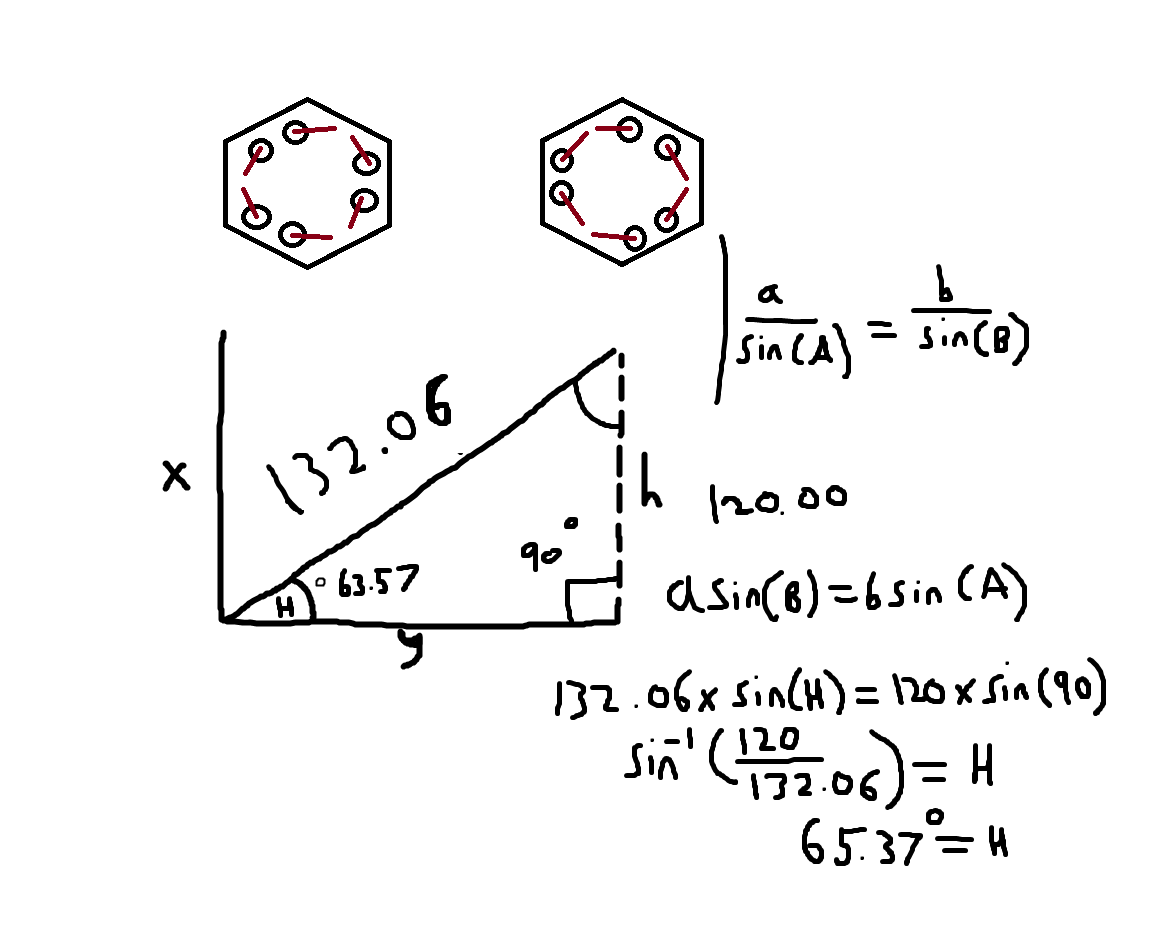 a/sin(A) = b/sin(B)
132.06
x
h
120.00
90°
°63.57
H
y
asin(B)=bsin(A)
132.06×sin(H)=120×sin(90)
sin⁻¹(120/132.06)=H
65.37°=H